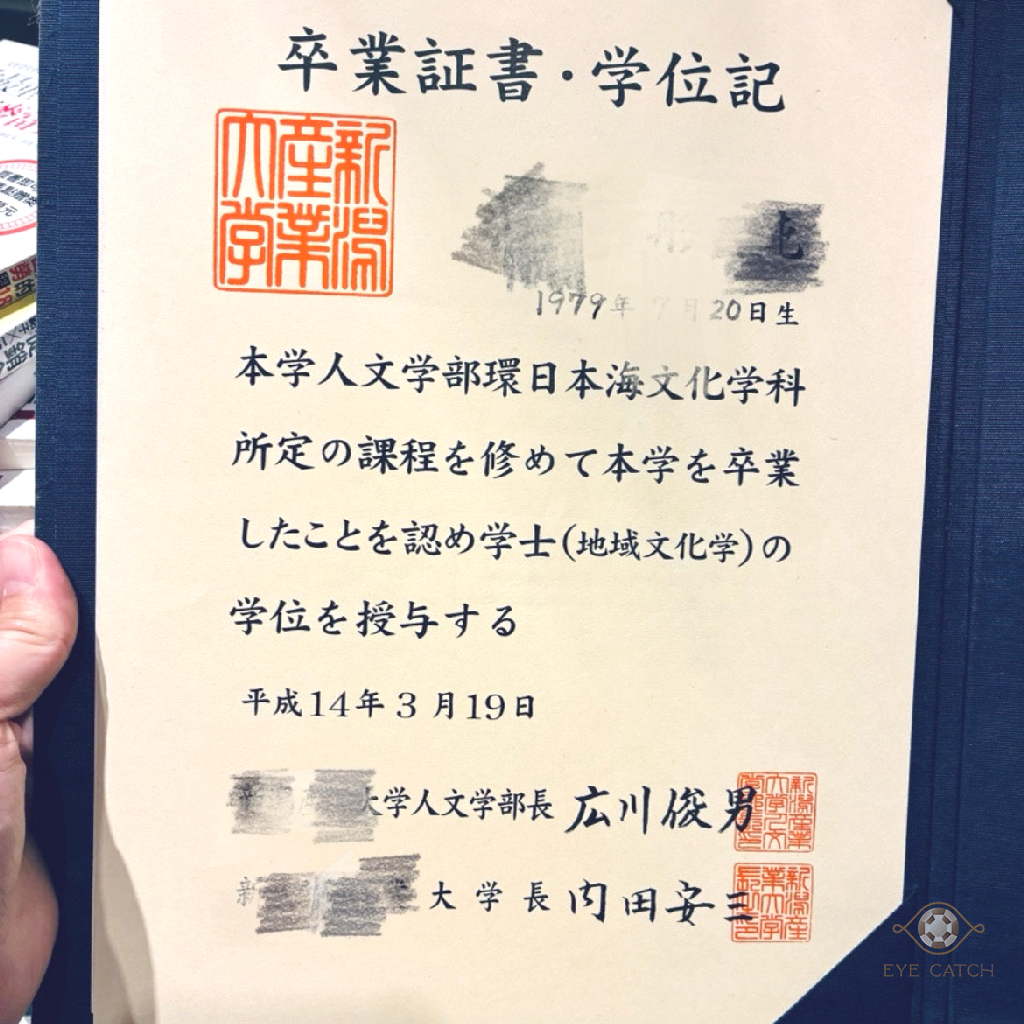 卒業証書・学位記
新潟産業大学
1979年7月20日生
本学人文学部環日本海文化学科
所定の課程を修めて本学を卒業
したことを認め学士(地域文化学)の
学位を授与する
平成14年3月19日
大学人文学部長 広川俊男
新 大学長 内田安三
EYE CATCH